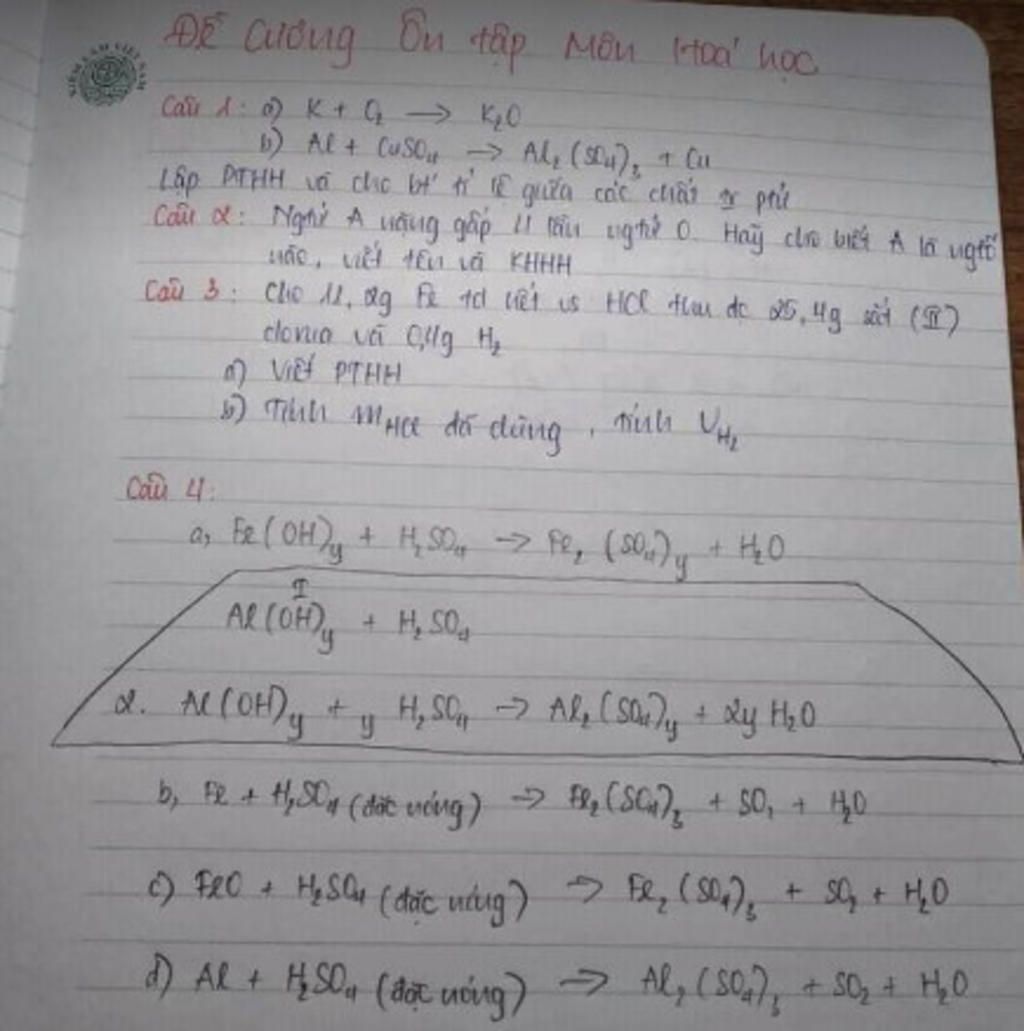 Đề Cương Ôn tập Môn Hoá học
Câu 1: a) K + O₂ → K₂O
b) Al + CuSO₄ → Al₂(SO₄)₃ + Cu
Lập PTHH và cho bt tỉ lệ giữa các chất pứ
Câu 2: Ngtử A nặng gấp 4 lần ngtử O. Hãy cho biết A là ngtố
nào, viết tên và KHHH
Câu 3: Cho 11,2g Fe td hết vs HCl thu đc 25,4g sắt (II)
clorua và 0,4g H₂
a) Viết PTHH
b) Tính mHCl đã dùng, tính VH₂
Câu 4:
a, Fe(OH)y + H₂SO₄ → Fe₂(SO₄)y + H₂O
I
Al(OH)y + H₂SO₄
2. Al(OH)y + y H₂SO₄ → Al₂(SO₄)y + 2y H₂O
b, Fe + H₂SO₄ (đặc nóng) → Fe₂(SO₄)₃ + SO₂ + H₂O
c) FeO + H₂SO₄ (đặc nóng) → Fe₂(SO₄)₃ + SO₂ + H₂O
d) Al + H₂SO₄ (đặc nóng) → Al₂(SO₄)₃ + SO₂ + H₂O